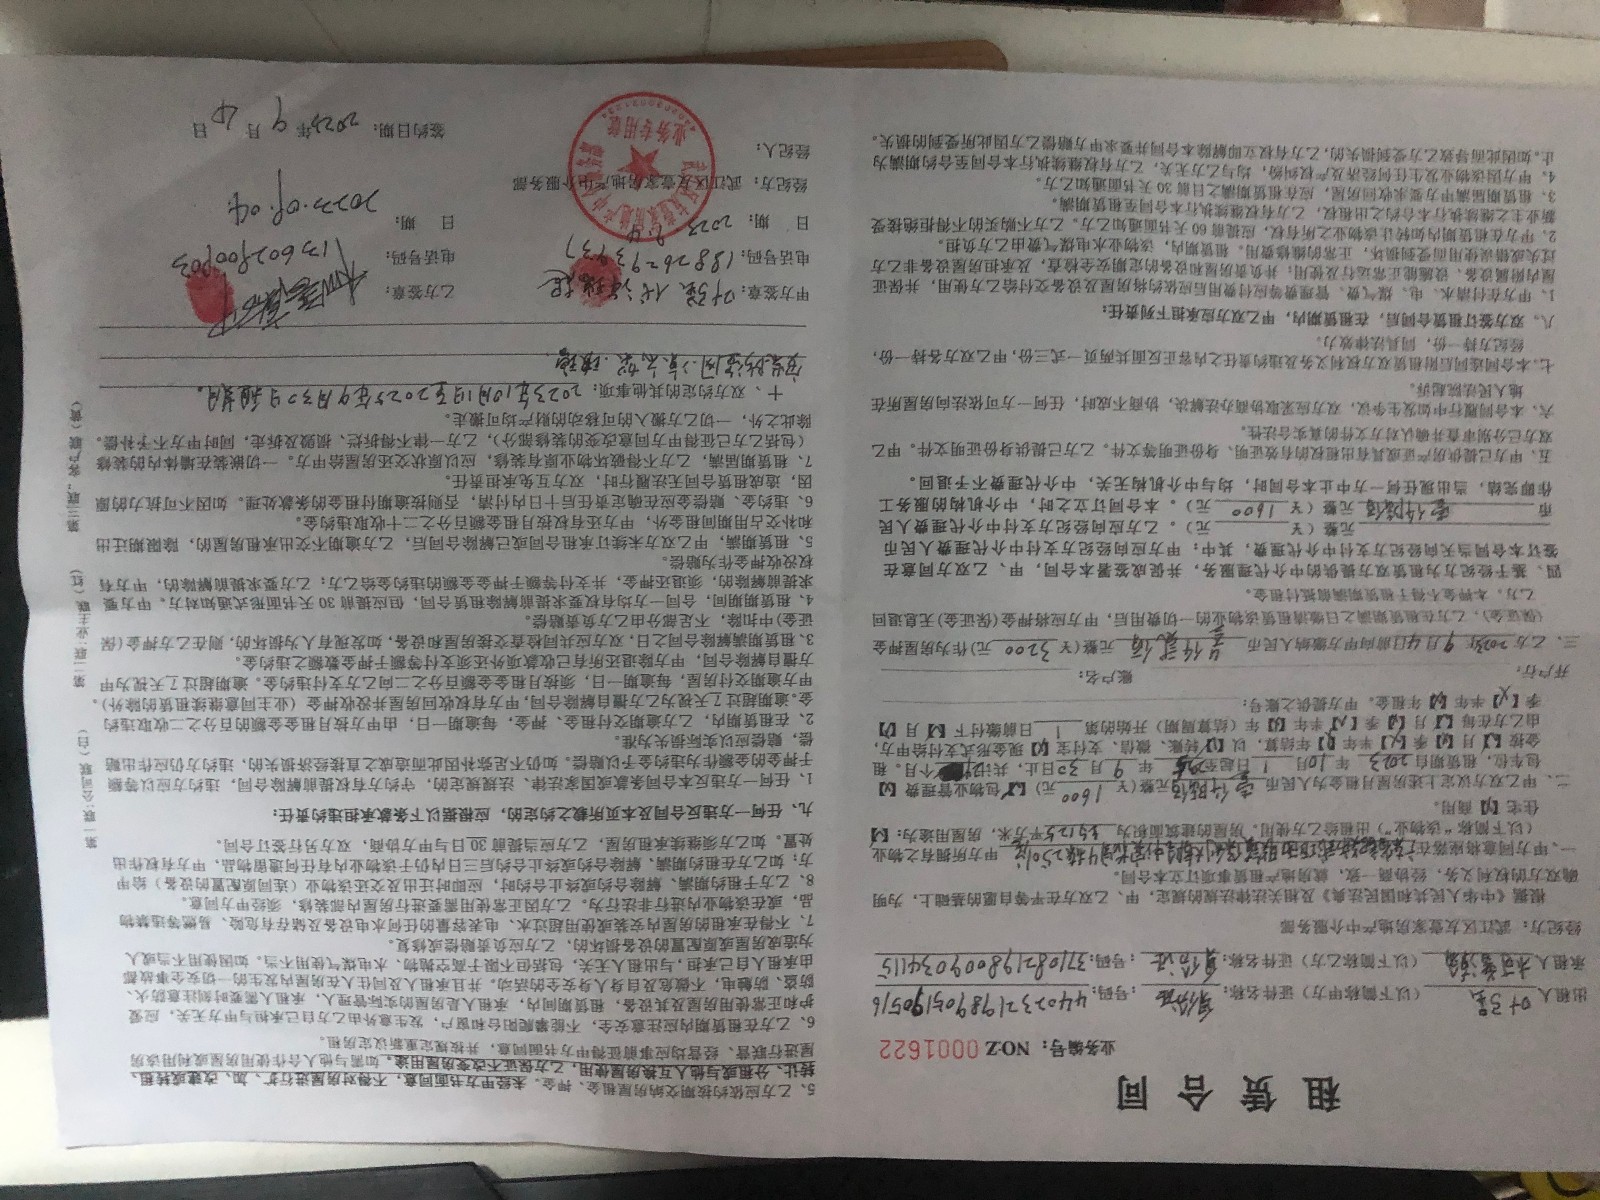 租赁合同
业务编号：NO:Z 0001622
出租人 叶强 （以下简称甲方）证件名称：身份证 ：号码：440232198905190516
承租人 （以下简称乙方）证件名称：身份证 ：号码：371082198009034115
经纪方：武江区友壹家房地产中介服务部
根据《中华人民共和国民法典》及相关法律法规的规定，甲、乙双方在平等自愿的基础上，为明
确双方的权利义务，经协商一致，就房地产租赁事项订立本合同。
一、甲方同意将座落在 甲方所有之物业
（以下简称“该物业”）出租给乙方使用。房屋的建筑面积为 平方米，房屋用途为：【】
住宅【】商用。
二、甲乙双方议定上述房屋月租金为人民币 壹仟陆佰 元整（￥ 1600 元）【】包物业管理费【】
包车位，租赁期自 2023 年 10月 1 日起至 年 9 月 30 日止，共计 个月。租
金按【】月【】季【】半年【】年结算，以【】转账、微信、支付宝【】现金形式支付给甲方，
由乙方在每【】月【】季【】半年【】年（结算周期）开始的第 1 日前缴付下【】月【】
季【】半年【】年租金。甲方提供之账号：
开户行： 账户名：
三、乙方 2023年 9月4日前向甲方缴纳人民币 叁仟贰佰 元整（￥ 3200 元）作为房屋押金
（保证金），乙方在租赁期满之日缴清租赁该物业的一切费用后，甲方应将押金（保证金）无息退回
乙方，本押金不得于租赁期满前抵付租金。
四、鉴于经纪方为租赁双方提供的中介代理服务，并促成签署本合同，甲、乙双方同意在
签订本合同当天向经纪方支付中介代理费，其中：甲方应向经纪方支付中介代理费人民币
元整（￥ 元）。乙方应向经纪方支付中介代理费人民
币 壹仟陆佰 元整（￥ 1600 元）。本合同订立之时，中介机构的服务工
作即完结，当出现任何一方中止本合同时，均与中介机构无关，中介代理费不予退回。
五、甲方已提供房产证或具有出租权的有效证明、身份证明等文件。乙方已提供身份证明文件。甲乙
双方已分别审查并确认对方文件的真实合法性。
六、本合同履行中如发生争议，双方应采取协商办法解决，协商不成时，任何一方可依法向房屋所在
地人民法院起诉。
七、本合同连同后附租赁双方权利义务及违约责任之内容正反面共两页一式三份，甲乙双方各持一份，
经纪方持一份，同具法律效力。
八、双方签订租赁合同后，在租赁期内，甲乙双方应承担下列责任：
1、甲方在付清水、电、煤气费、管理费等应付费用后应依约将房屋及设备交付给乙方使用，并保证
屋内附属设备、设施能正常运行及使用；并负责房屋和设备的定期安全检查，及承担房屋设备非乙方
过失或错误使用而受到损坏，正常的维修费用。租赁期内，该物业水电煤气费由乙方负担。
2、甲方在租赁期内如转让该物业之所有权，应提前 60 天书面通知乙方。乙方不购买的不得拒绝接受
新业主之继续执行本合约之出租权，乙方有权继续执行本合同至租赁期满。
3、租赁期届满甲方要求收回房屋，应在租赁期满之日前 30 天书面通知乙方。
4、甲方因该物业发生任何经济及产权纠纷，均与乙方无关，乙方有权继续执行本合同至合约期满为
止。如因此而导致乙方受到损失的，乙方有权立即解除本合同并要求甲方赔偿乙方因此所受到的损失。
5、乙方应依约按期交纳房屋租金、押金。未经甲方书面同意，不得对房屋进行扩、加、改建或转租、
转让、分租或与他人互换房屋使用，乙方保证不改变房屋用途。如需与他人合作使用房屋或利用该房
屋进行联营、经营均应事前征得甲方书面同意，并按规定重新议定房租。
6、乙方在租赁期内应注意安全，不能攀爬阳台和窗户，发生意外由乙方自己承担与甲方无关，应爱
护和正常使用房屋及其设备，租赁期间内，承租人是房屋的实际管理人，承租人需要时刻注意防火、
防盗、防触电，不做危及自身人身安全的活动，并且承租人及同住人在房屋内发生的一切安全事故都
由承租人自己承担，与出租人无关，包括但不限于高空抛物、水电煤气使用不当。如因使用不当或人
为造成房屋或原配置的设备损坏的，乙方应负责赔偿或修复。
7、不得在承租的房屋内安装或使用超过水、电表容量的任何水电设备及储存有危险、易燃等违禁物
品，或在该物业内进行非法行为。乙方因正常使用需要进行房屋内部装修，须经甲方同意。
8、乙方于租约期满、解除合约或终止合约时，应即时迁出及交还该物业（连同原配置的设备）给甲
方；如乙方在租约期满、解除合约或终止合约后三日内仍于该物业内有任何遗留物品，甲方有权作出
处置。如乙方须继续承租房屋，乙方应当提前 30 日与甲方协商，双方另行签订合同。
九、任何一方违反合同及本页所载之约定的，应根据以下条款承担违约责任：
1、任何一方违反本合同条款或国家法律、法规规定的，守约方有权提前解除合同，违约方应以等额
于押金的金额作为违约金予以赔偿。如仍不足弥补因此而造成之直接经济损失的，违约方仍应作出赔
偿，赔偿应以实际损失为准。
2、在租赁期内，乙方逾期交付租金、押金，每逾期一日，由甲方按月租金金额的百分之二收取违约
金。逾期超过了天视为乙方擅自解除合同，甲方有权收回房屋并没收押金（业主同意继续租赁的除外）。
甲方逾期交付房屋，每逾期一日，须按月租金金额百分之二向乙方支付违约金。逾期超过了天视为甲
方擅自解除合同，甲方除退还所有已收款项外还须支付等额于押金数额之违约金。
3、租赁期满解除合同之日，双方应共同检查交接房屋和设备，如发现有人为损坏的，则在乙方押金（保
证金）中扣除，不足部分由乙方负责赔偿。
4、租赁期间，合同一方均有权要求提前解除租赁合同，但应提前 30 天书面形式通知对方。甲方要
求提前解除的，须退还押金，并支付等额于押金金额的违约金给乙方；乙方要求提前解除的，甲方有
权没收押金作为赔偿。
5、租赁期满，甲乙双方未续订承租合同或已解除合同后，乙方逾期不交出承租房屋的，除限期迁出
和补交占用期间租金外，甲方还有权按月租金金额百分之二十收取违约金。
6、违约金、赔偿金应在确定责任后十日内付清，否则按逾期付租金的条款处理。如因不可抗力的原
因，造成租赁合同无法履行时，双方互免承担责任。
7、租赁期届满，乙方不得破坏物业原有装修，应以原状交还房屋给甲方。一切嵌装在墙体内的装修
（包括乙方已征得甲方同意改变的装修部分），乙方一律不得拆烂、损毁及拆走，同时甲方不予补偿。
除此之外，一切乙方搬入的可移动的财产均可搬走。
十、双方约定的其他事项：2023年10月1日至2025年9月30日租期。
甲方签章： 叶强 代 乙方签章：
电话号码：18826293937 电话号码：13602900903
日 期：2023 9.4 日 期：2023.09.04
经纪方：武江区友壹家房地产中介服务部
经纪人： 签约日期：2023 年 9 月 4 日
业务专用章
第一联:公司联（白） 第二联:业主联（红） 第三联:客户联（黄）